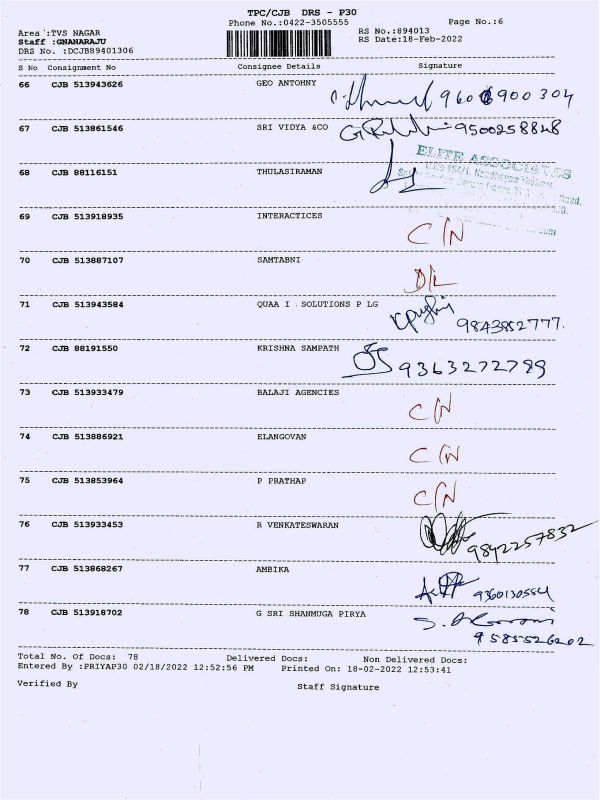 TPC/CJB DRS - P30
Phone No.:0422-3505555 Page No.:6
Area :TVS NAGAR RS No.:894013
Staff :GNANARAJU RS Date:18-Feb-2022
DRS No. :DCJB89401306
S No Consignment No Consignee Details Signature
66 CJB 513943626 GEO ANTOHNY
67 CJB 513861546 SRI VIDYA &CO 9500258828
ELITE ASSOCIATES
68 CJB 88116151 THULASIRAMAN
69 CJB 513918935 INTERACTICES C/N
70 CJB 513887107 SAMTABNI D/L
71 CJB 513943584 QUAA I SOLUTIONS P LG 9843852777.
72 CJB 88191550 KRISHNA SAMPATH 9363272789
73 CJB 513933479 BALAJI AGENCIES C/N
74 CJB 513886921 ELANGOVAN C/N
75 CJB 513853964 P PRATHAP C/N
76 CJB 513933453 R VENKATESWARAN 9842257832
77 CJB 513868267 AMBIKA 9360130554
78 CJB 513918702 G SRI SHANMUGA PIRYA
9585526202
Total No. Of Docs: 78 Delivered Docs: Non Delivered Docs:
Entered By :PRIYAP30 02/18/2022 12:52:56 PM Printed On: 18-02-2022 12:53:41
Verified By Staff Signature